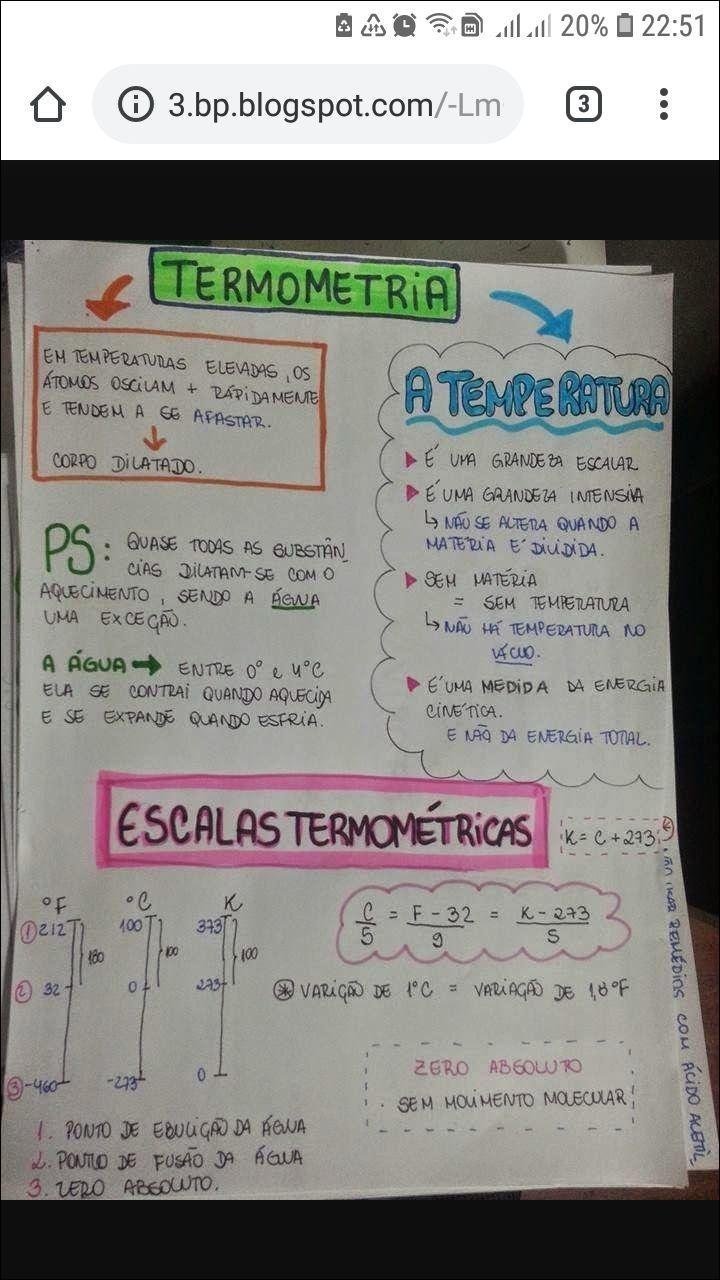 20% 22:51
3.bp.blogspot.com/-Lm
3
TERMOMETRIA
EM TEMPERATURAS ELEVADAS, OS
ÁTOMOS OSCILAM + RÁPIDAMENTE
E TENDEM A SE AFASTAR.
CORPO DILATADO.
PS: QUASE TODAS AS SUBSTÂN_
CIAS DILATAM-SE COM O
AQUECIMENTO, SENDO A ÁGUA
UMA EXCEÇÃO.
A ÁGUA → ENTRE 0° e 4°C
ELA SE CONTRAI QUANDO AQUECIDA
E SE EXPANDE QUANDO ESFRIA.
A TEMPERATURA
É UMA GRANDEZA ESCALAR
É UMA GRANDEZA INTENSIVA
↳ NÃO SE ALTERA QUANDO A
MATÉRIA É DIVIDIDA.
SEM MATÉRIA
= SEM TEMPERATURA
↳ NÃO HÁ TEMPERATURA NO
VÁCUO.
É UMA MEDIDA DA ENERGIA
CINÉTICA.
E NÃO DA ENERGIA TOTAL.
ESCALAS TERMOMÉTRICAS
K = C + 273
°F °C K
1 212 100 373
180 100 100
2 32 0 273
3 -460 -273 0
C/5 = F - 32/9 = K - 273/5
* VARIGÃO DE 1°C = VARIAÇÃO DE 1,8°F
ZERO ABSOLUTO
. SEM MOVIMENTO MOLECULAR
1. PONTO DE EBULIÇÃO DA ÁGUA
2. PONTO DE FUSÃO DA ÁGUA
3. ZERO ABSOLUTO.
REMÉDIOS COM ÁCIDO ACETIL